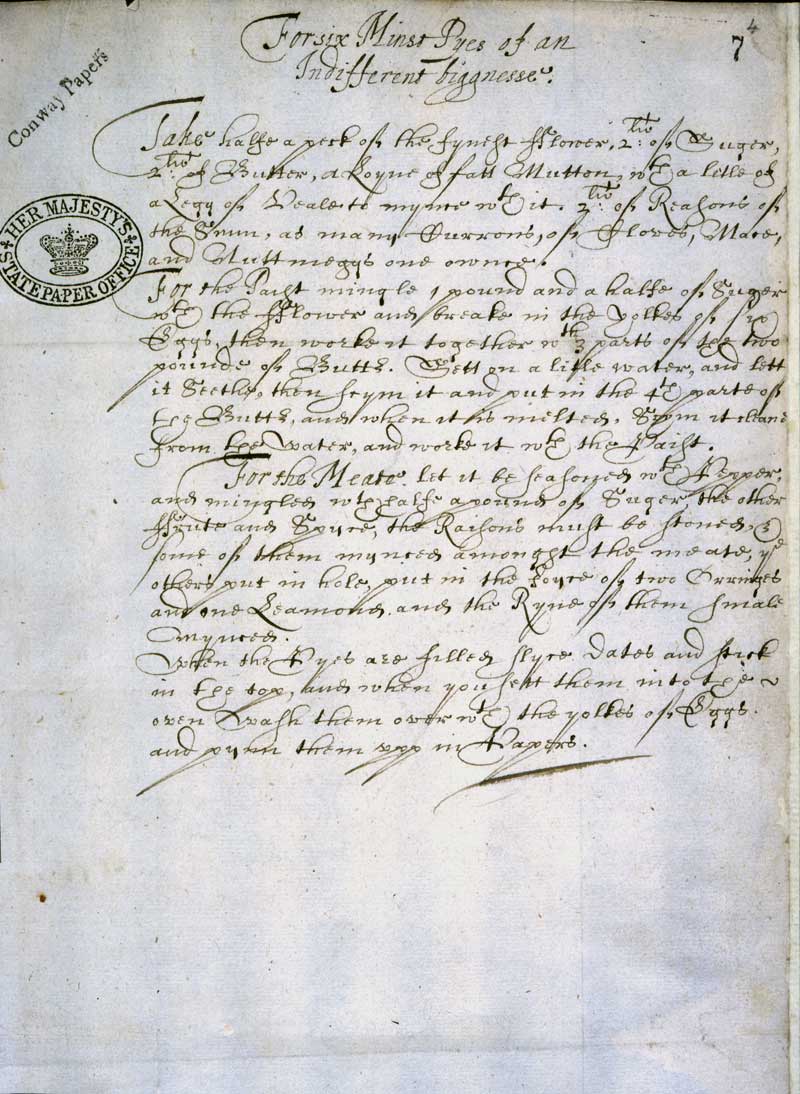 For six Minst Pyes of an
Indifferent biggnesse.
7
4
Conway Papers
HER MAJESTY'S
STATE PAPER OFFICE
Take halfe a peck of the fynest fflower, 2:li of Suger,
2:li of Butter, a Loyne of fatt Mutton, wth a litle of
a Legg of Veale to mynce wth it. 2:li of Reasons of
the Sunn, as many Currons, of Cloves, Mace,
and Nuttmeggs one ownce.
For the Paist mingle 1 pound and a halfe of Suger
wth the fflower and breake in the yolkes of six
Eggs, then worke it together wth 3 parts of the two
pounds of Butter. Sett on a litle water, and lett
it Seethe, then scym it and put in the 4th parte of
the Butter, and when it is melted, Scym it cleane
from the Water, and worke it wth the Paist.
For the Meate let it be seasoned wth Pepper,
and mingled wth halfe a pound of Suger, the other
ffrute and Spyce, the Raisons must be stoned, &
some of them mynced amongst the meate, ye
others put in hole, put in the Joyce of two Orringes
and one Leamond, and the Ryne of them smale
mynced.
When the Pyes are filled slyce dates and stick
in the top, and when you sett them into the
oven Wash them over wth the yolkes of Eggs.
and pynn them upp in Papers.